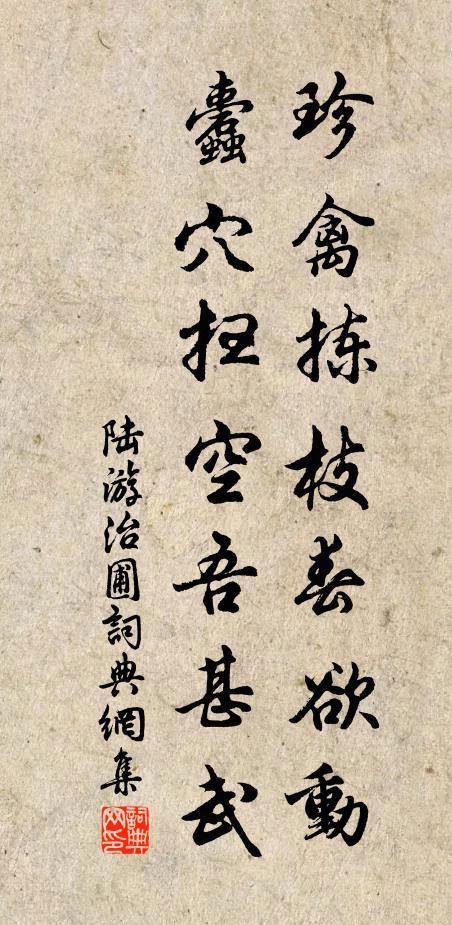 珍禽揀枝春欲動
蠹穴掃空吾甚武
陸游治圃詞典網集
詞典网印